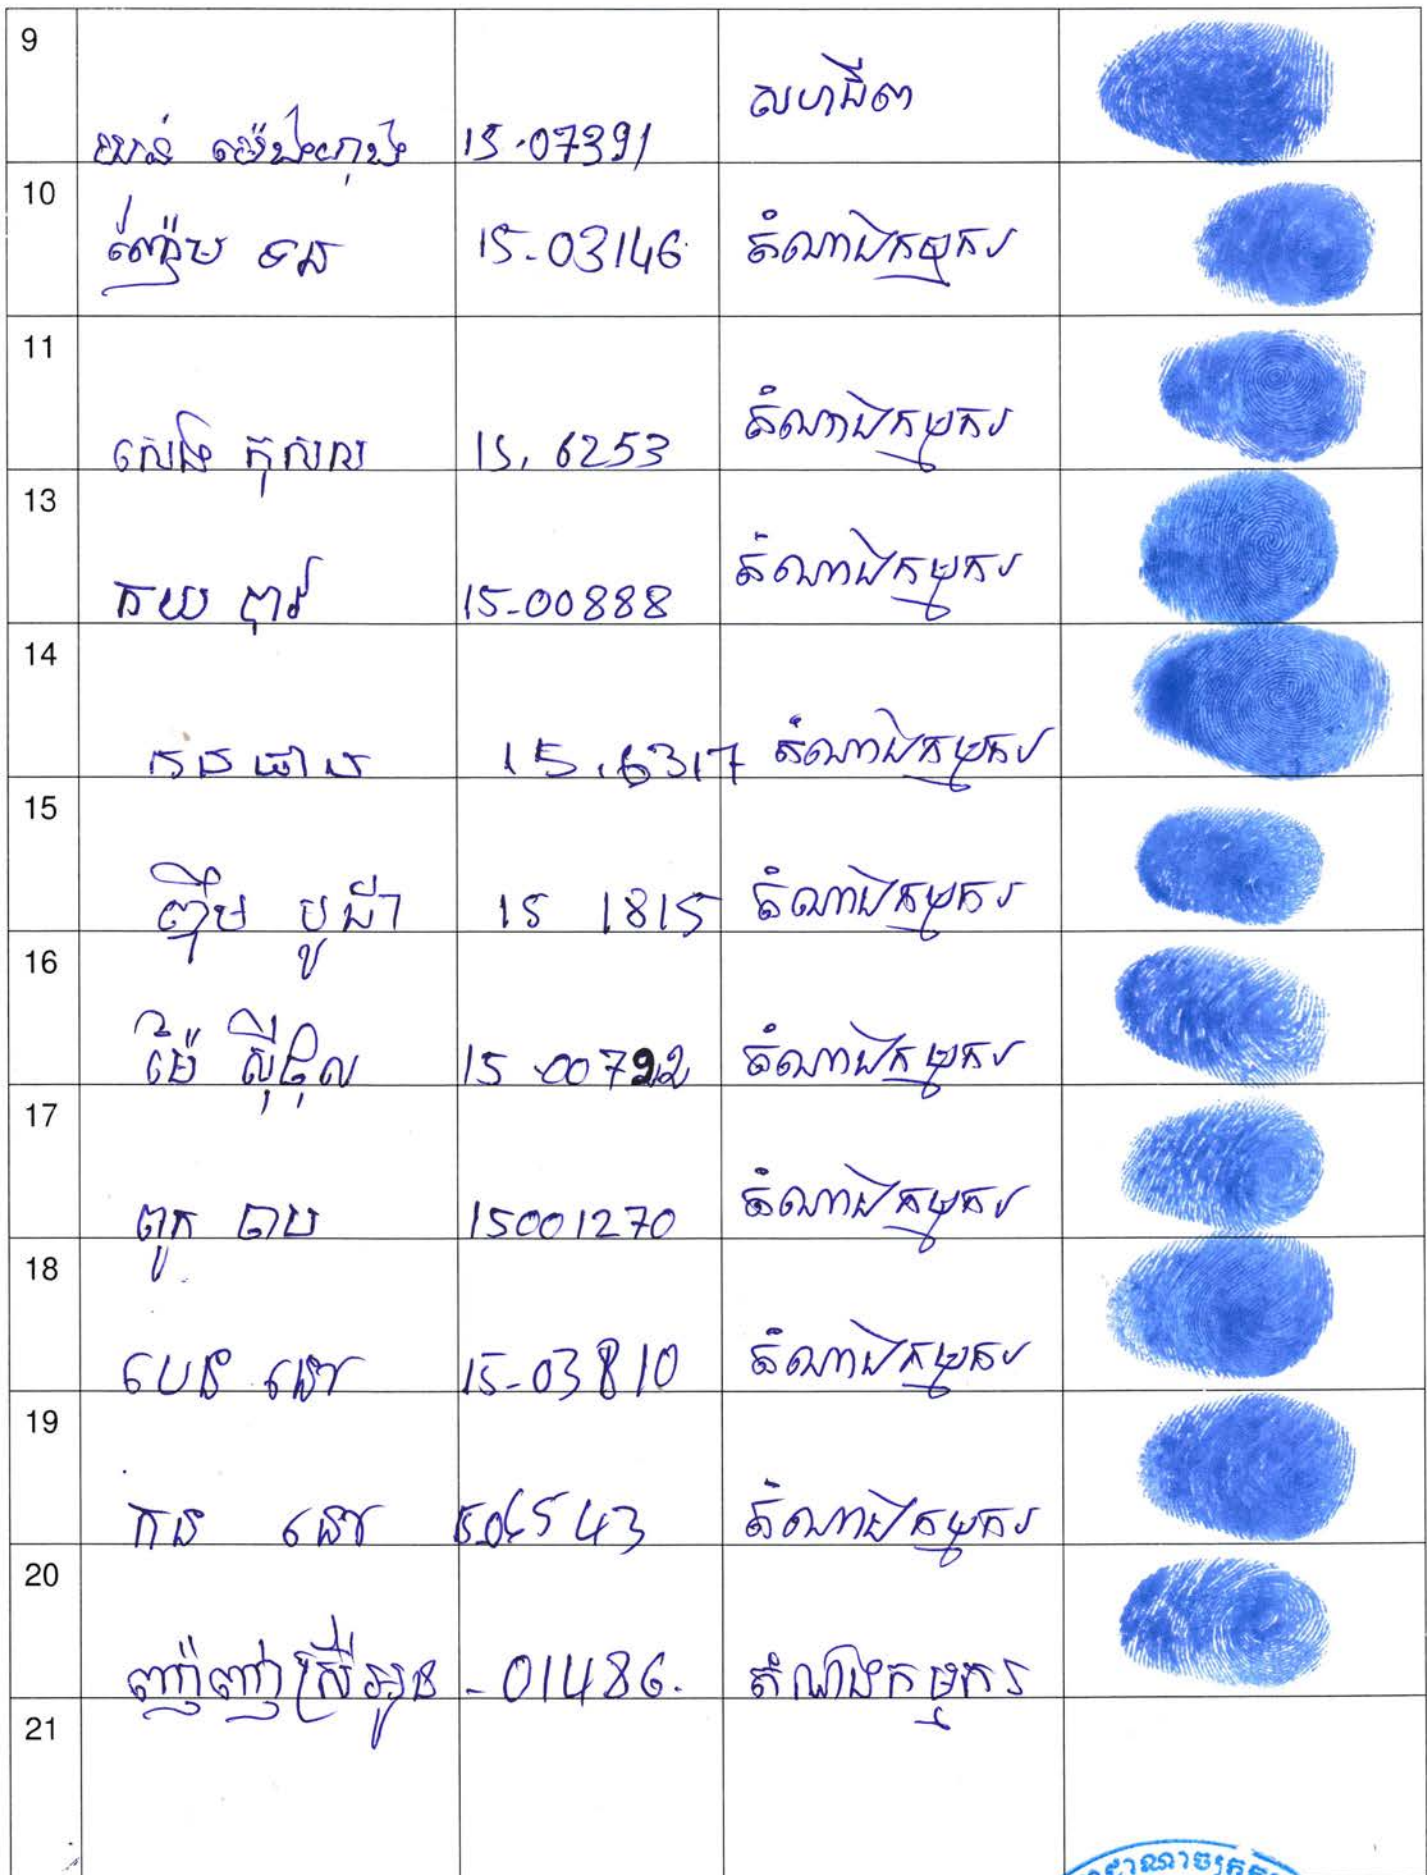 9 សហជីព
15-07391
10 ញ៉ែម ទន 15-03146 តំណាងកម្មករ
11 សេង កុសល 15, 6253 តំណាងកម្មករ
13 កយ ពាវ 15-00888 តំណាងកម្មករ
14 15.6317 តំណាងកម្មករ
15 ញឹម បូជា 15 1815 តំណាងកម្មករ
16 ម៉ៃ ស៊ីផុល 15 00792 តំណាងកម្មករ
17 ពូក ចាប 15001270 តំណាងកម្មករ
18 បេន នៅ 15-03810 តំណាងកម្មករ
19 កន នៅ តំណាងកម្មករ
20 ញ៉ាញ់ ស្រីអូន - 01486. តំណាងកម្មករ
21